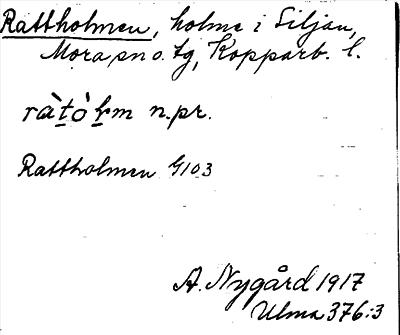 Rattholmen, holme i Siljan,
Mora sn o. tg, Kopparb. l.
ràt̲òl̲m n.pr.
Rattholmen G103
A. Nygård 1917
Ulma 376:3